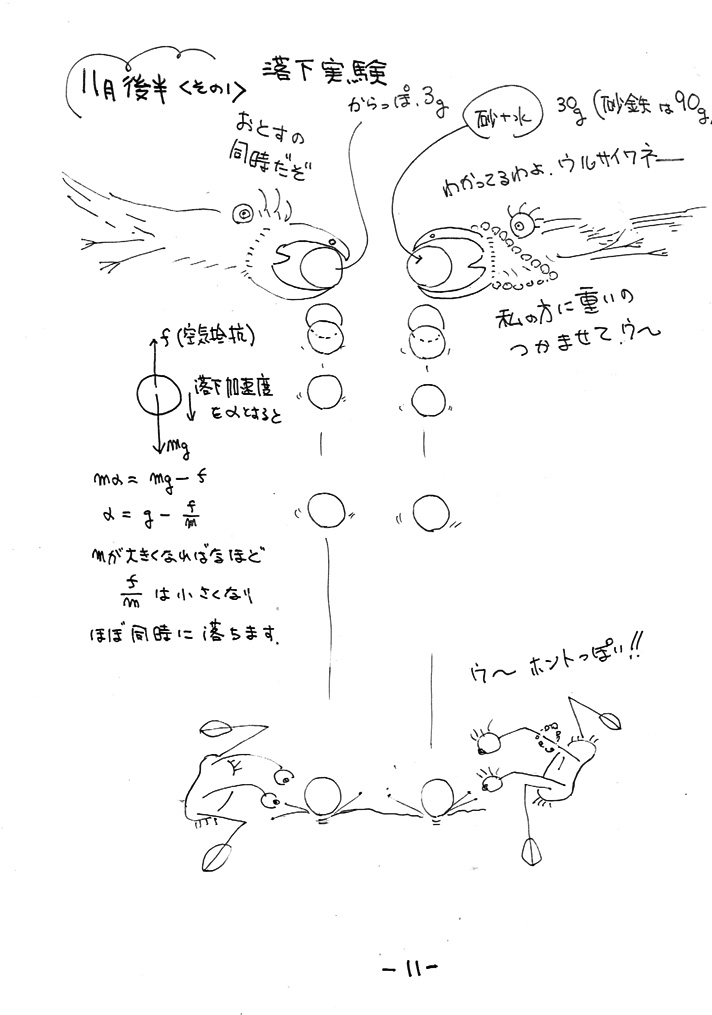 11月後半〈その1〉
落下実験
からっぽ.3g
砂+水
30g(砂鉄は90g)
おとすの
同時だぞ
わかってるわよ.ウルサイワネー
私の方に重いの
つかませて.ウ〜
f(空気抵抗)
落下加速度
をαとすると
mg
mα = mg − f
α = g − f/m
mが大きくなればなるほど
f/m は小さくなり
ほぼ同時に落ちます.
ウ〜 ホントっぽい!!
-11-